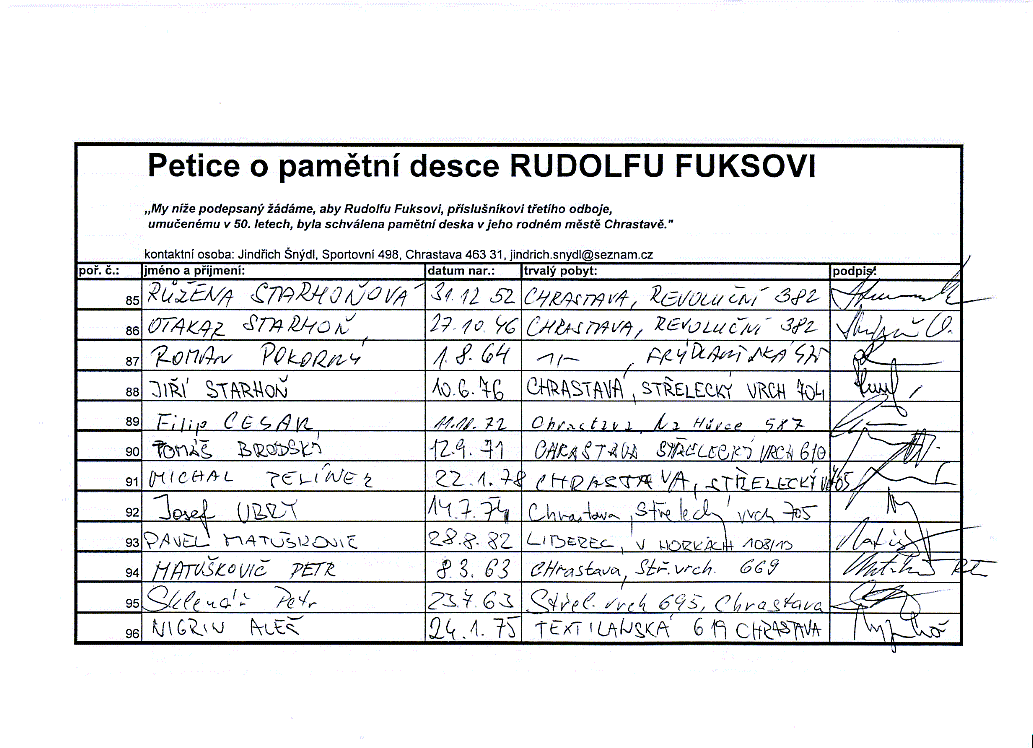 Petice o pamětní desce RUDOLFU FUKSOVI
„My níže podepsaný žádáme, aby Rudolfu Fuksovi, příslušníkovi třetího odboje,
umučenému v 50. letech, byla schválena pamětní deska v jeho rodném městě Chrastavě."
kontaktní osoba: Jindřich Šnýdl, Sportovní 498, Chrastava 463 31, jindrich.snydl@seznam.cz
poř. č.: jméno a příjmení: datum nar.: trvalý pobyt: podpis:
85 RŮŽENA STARHOŇOVÁ 31.12 52 CHRASTAVA, REVOLUČNÍ 382
86 OTAKAR STARHOŇ 27.10.46 CHRASTAVA, REVOLUČNÍ 382
87 ROMAN POKORNÝ 1.8.64 -11- FRÝDLANTSKÁ
88 JIŘÍ STARHOŇ 10.6.76 CHRASTAVA, STŘELECKÝ VRCH 704
89 Filip CESAR 72 Chrastava, Na Hůrce 587
90 TOMÁŠ BRODSKÝ 12.9.71 CHRASTAVA STŘELECKÝ VRCH 610
91 MICHAL PELÍNEK 22.1.78 CHRASTAVA, STŘELECKÝ
92 Josef UBRY 14.7.74 Chrastava, Střelecký vrch 705
93 PAVEL MATUŠKOVIČ 28.8.82 LIBEREC, V HORKÁCH 108/13
94 MATUŠKOVIČ PETR 8.3.63 CHrastava, Stř. vrch. 669
95 Sklenář Petr 23.7.63 Střel. vrch 695, Chrastava
96 NIGRIN ALEŠ 24.1.75 TEXTILANSKÁ 619 CHRASTAVA